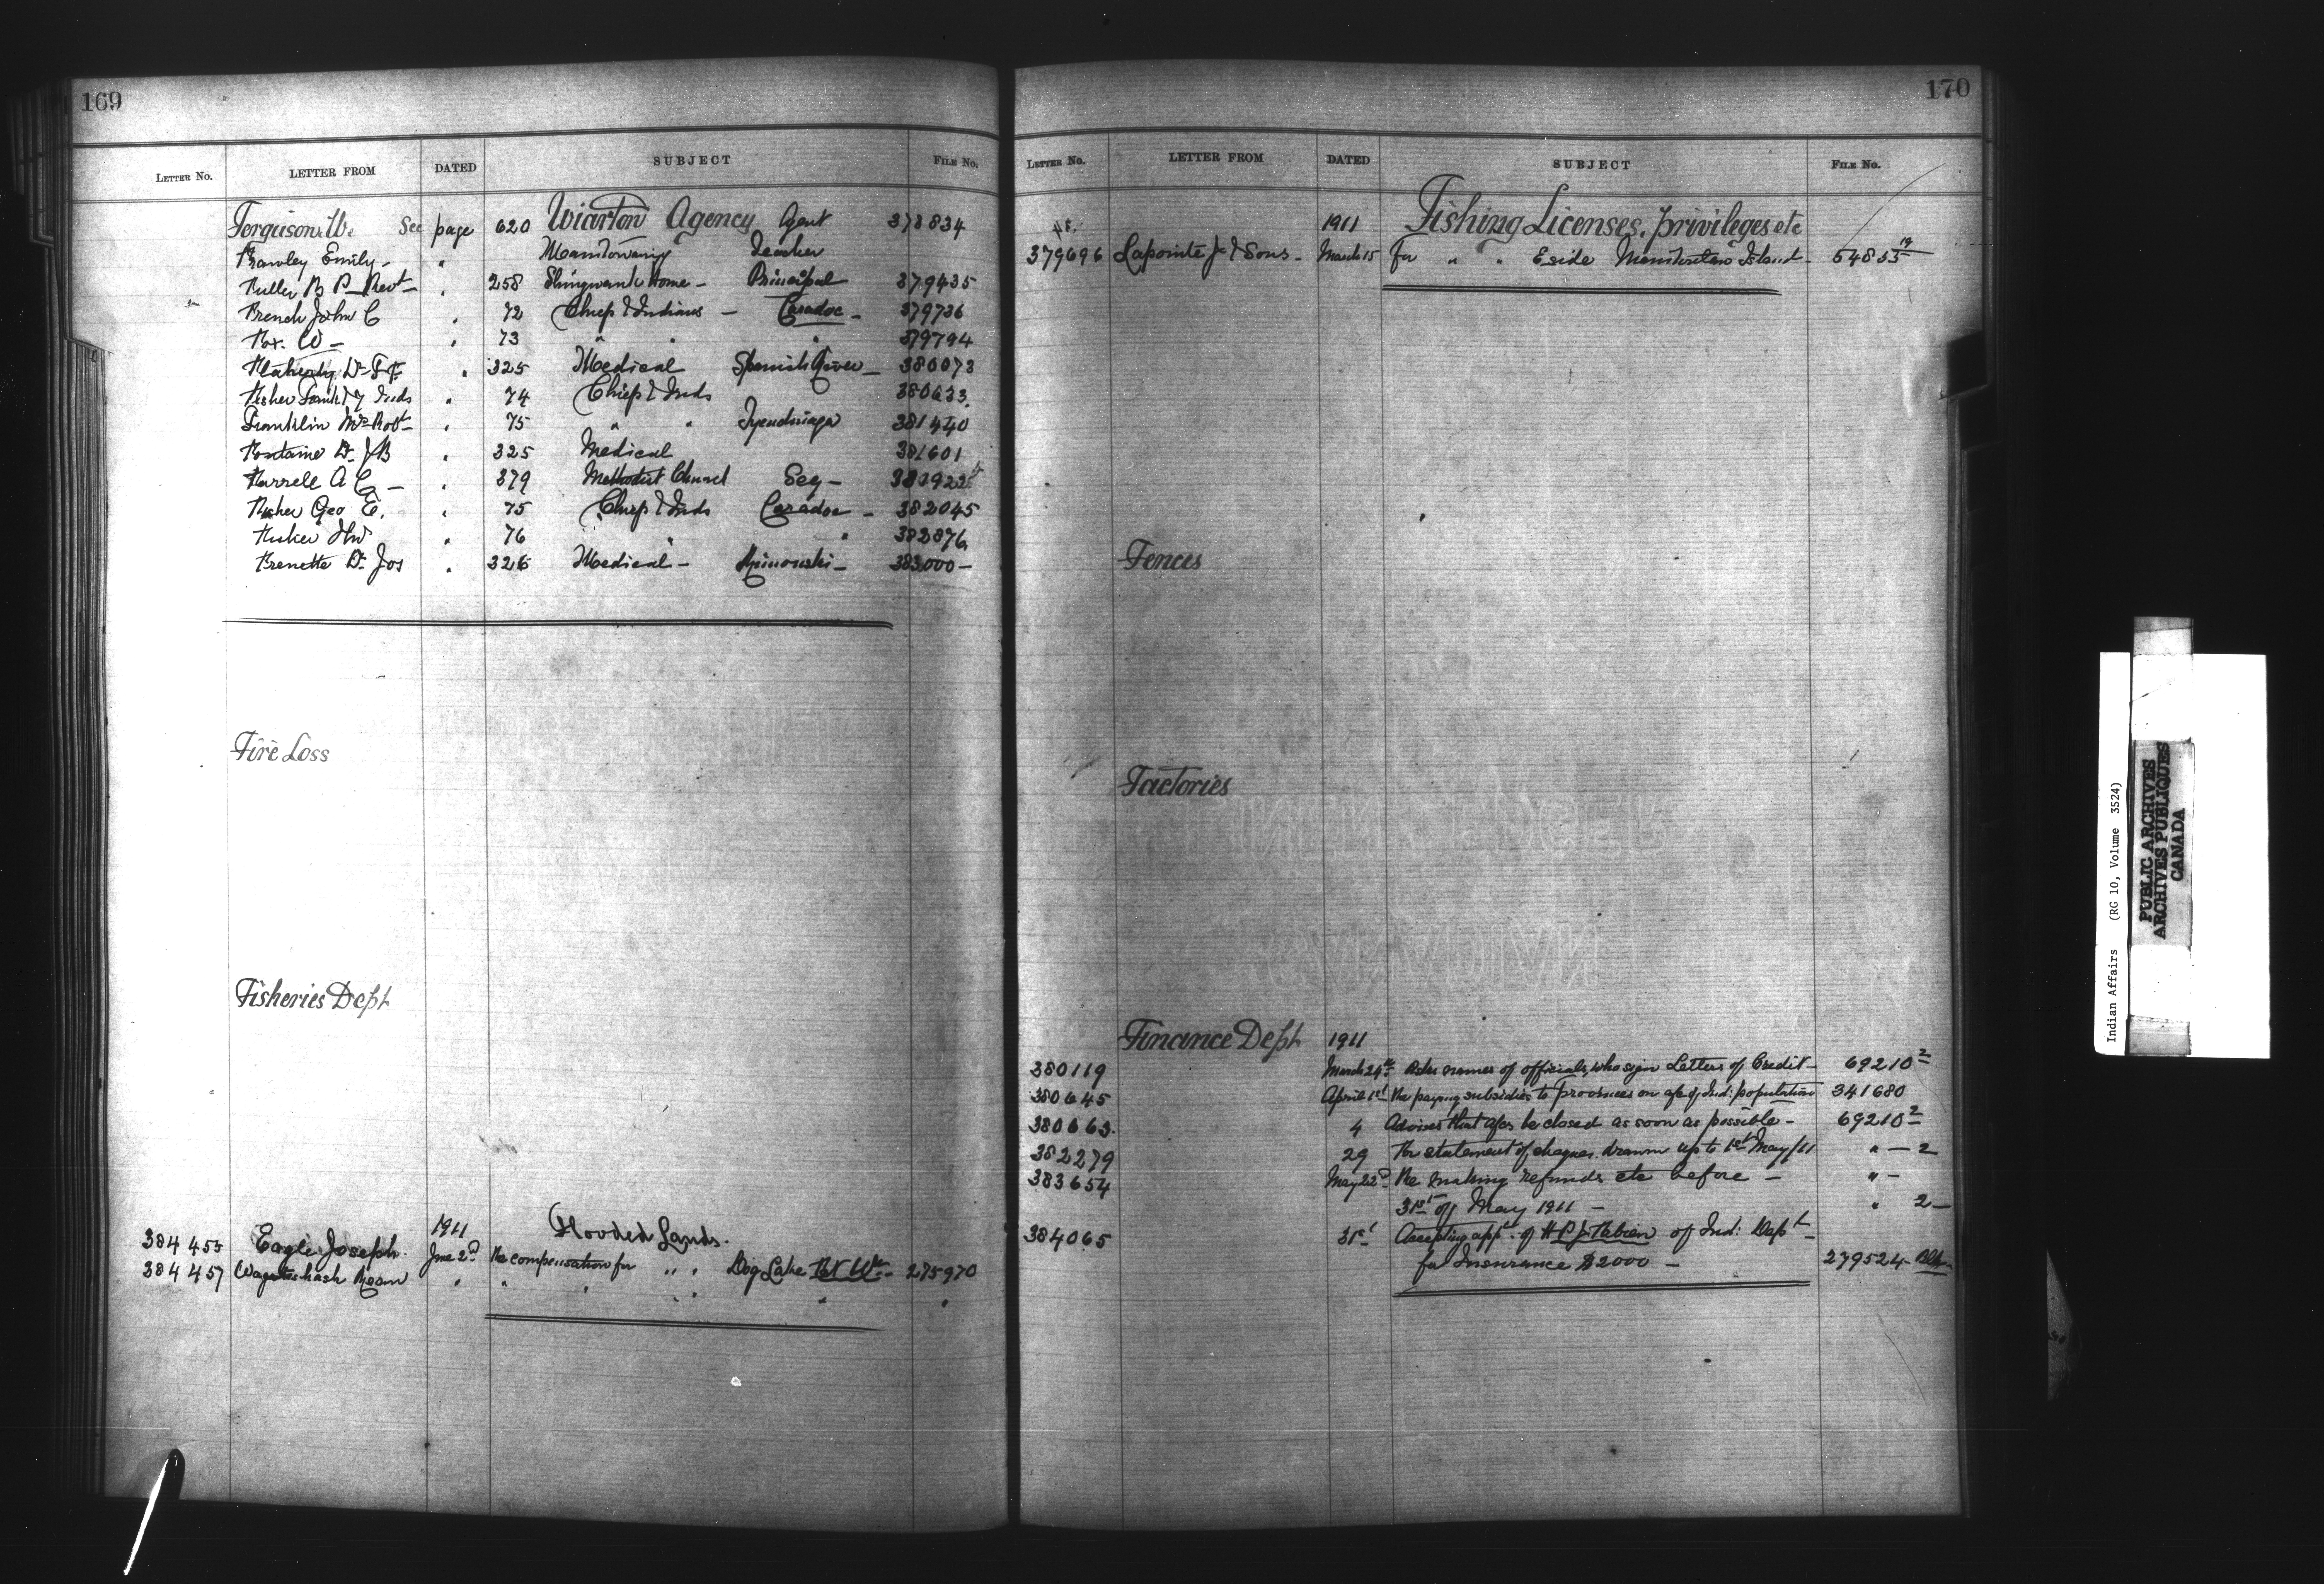 169
LETTER NO. LETTER FROM DATED SUBJECT FILE NO.
Ferguson W. See page 620 Wiarton Agency Agent 378834
Frawley Emily - " Manitowaning Teacher
Fuller B P Revd " 258 Shingwauk Home - Principal 379435
French John C " 72 Chiefs & Indians - Caradoc - 379736
Fox. W - " 73 " " 379794
Flaherty Dr " 325 Medical Spanish River - 380073
Fisher & Inds " 74 Chiefs & Inds 380633
Franklin Mrs Robt " 75 " " Tyendinaga 381440
Fontaine Dr J B " 325 Medical 381601
Farrell A C - " 379 Methodist Church Secy -
Fisher Geo E. " 75 Chiefs & Inds Caradoc - 382045
" 76 " " 382876
Frenette Dr Jos " 326 Medical - Rimouski - 383000 -
Fire Loss
Fisheries Dept
1911 Flooded Lands.
384455 Eagle Joseph. June 2d Re compensation for " " Dog Lake 275970
384457 " " " " " " "
170
LETTER NO. LETTER FROM DATED SUBJECT FILE NO.
1911 Fishing Licenses, privileges etc
379696 Lapointe J & Sons - March 15 for " " E side Manitoulin Island - 54855
Fences
Factories
Finance Dept 1911
380119 March 24th Asks names of officials, who sign Letters of Credit - 69210 2
380645 April 1st Re paying subsidies to provinces on a/c of Ind: population 341680
380663. 4 Advises that a/cs be closed as soon as possible - 69210 2
382279 29 for statement of cheques drawn up to 1st May/11 " - 2
383654 May 22d Re making refunds etc before - " -
31st of May 1911 - " 2 -
384065 31st Accepting appn of H P J Fabien of Ind: Dept
for Insurance $2000 - 279524
Indian Affairs (RG 10, Volume 3524)
PUBLIC ARCHIVES
ARCHIVES PUBLIQUES
CANADA